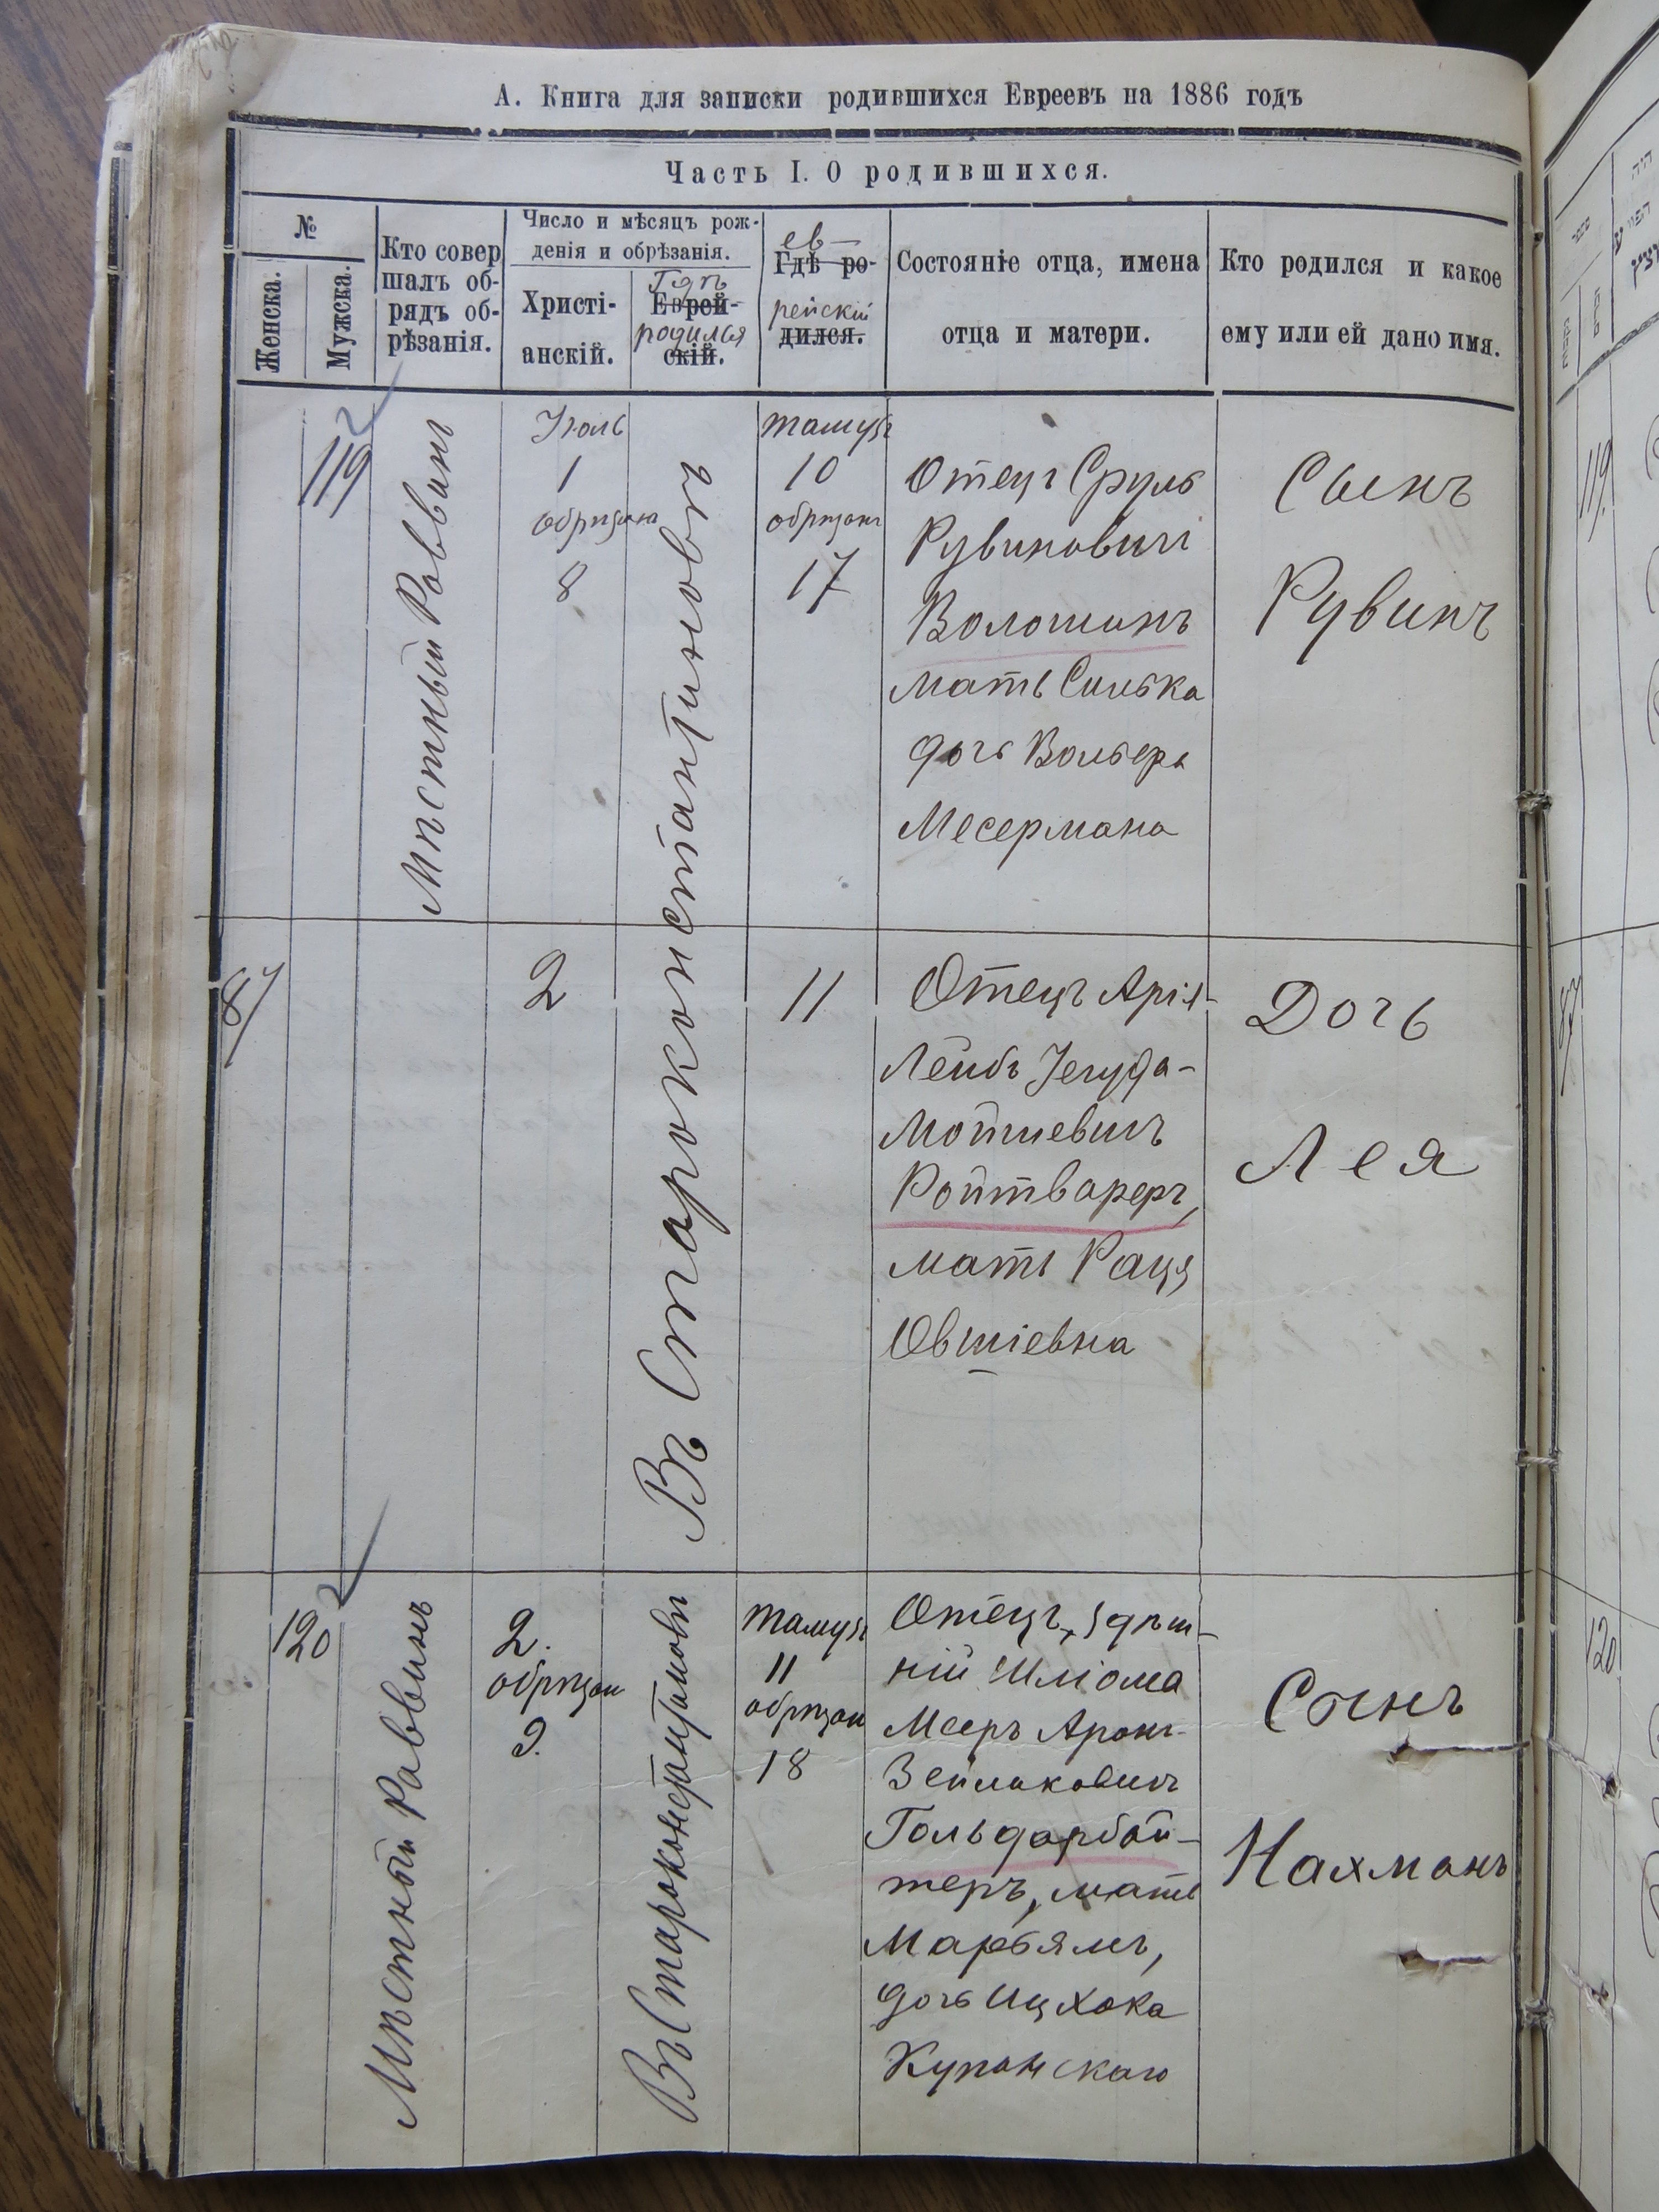 А. Книга для записки родившихся Евреевъ на 1886 годъ
Часть I. О родившихся.
№
Женска.
Мужска.
Кто совер
шалъ об-
рядъ об-
рѣзанія.
Число и мѣсяцъ рож-
денія и обрѣзанія.
Христі-
анскій.
Гдѣ
Еврей-
родился
скій.
ев-
Гдѣ ро-
рейскій
дился.
Состояніе отца, имена
отца и матери.
Кто родился и какое
ему или ей дано имя.
119
Мѣстный Раввинъ
Іюль
1
обрѣзанъ
8
Въ Староконстантиновѣ
Тамузъ
10
обрѣзанъ
17
Отецъ Сруль
Рувиновичъ
Волошинъ
мать Сиська
дочь Вольфа
Месермана
Сынъ
Рувинъ
87
2
11
Отецъ Арія-
Лейбъ Іегуда-
Мотшевичъ
Ройтбареръ,
мать Рася
Овшіевна
Дочь
Лея
120
Мѣстный Раввинъ
2.
обрѣзан
9.
Въ Староконстантиновѣ
Тамузъ
11
обрѣзан
18
Отецъ, здѣш-
ній Шліома
Мееръ Аронъ-
Зейликовичъ
Гольдарбай-
теръ, мать
Марьямъ,
дочь Ицхока
Купанскаго
Сынъ
Нахманъ
119
87
120